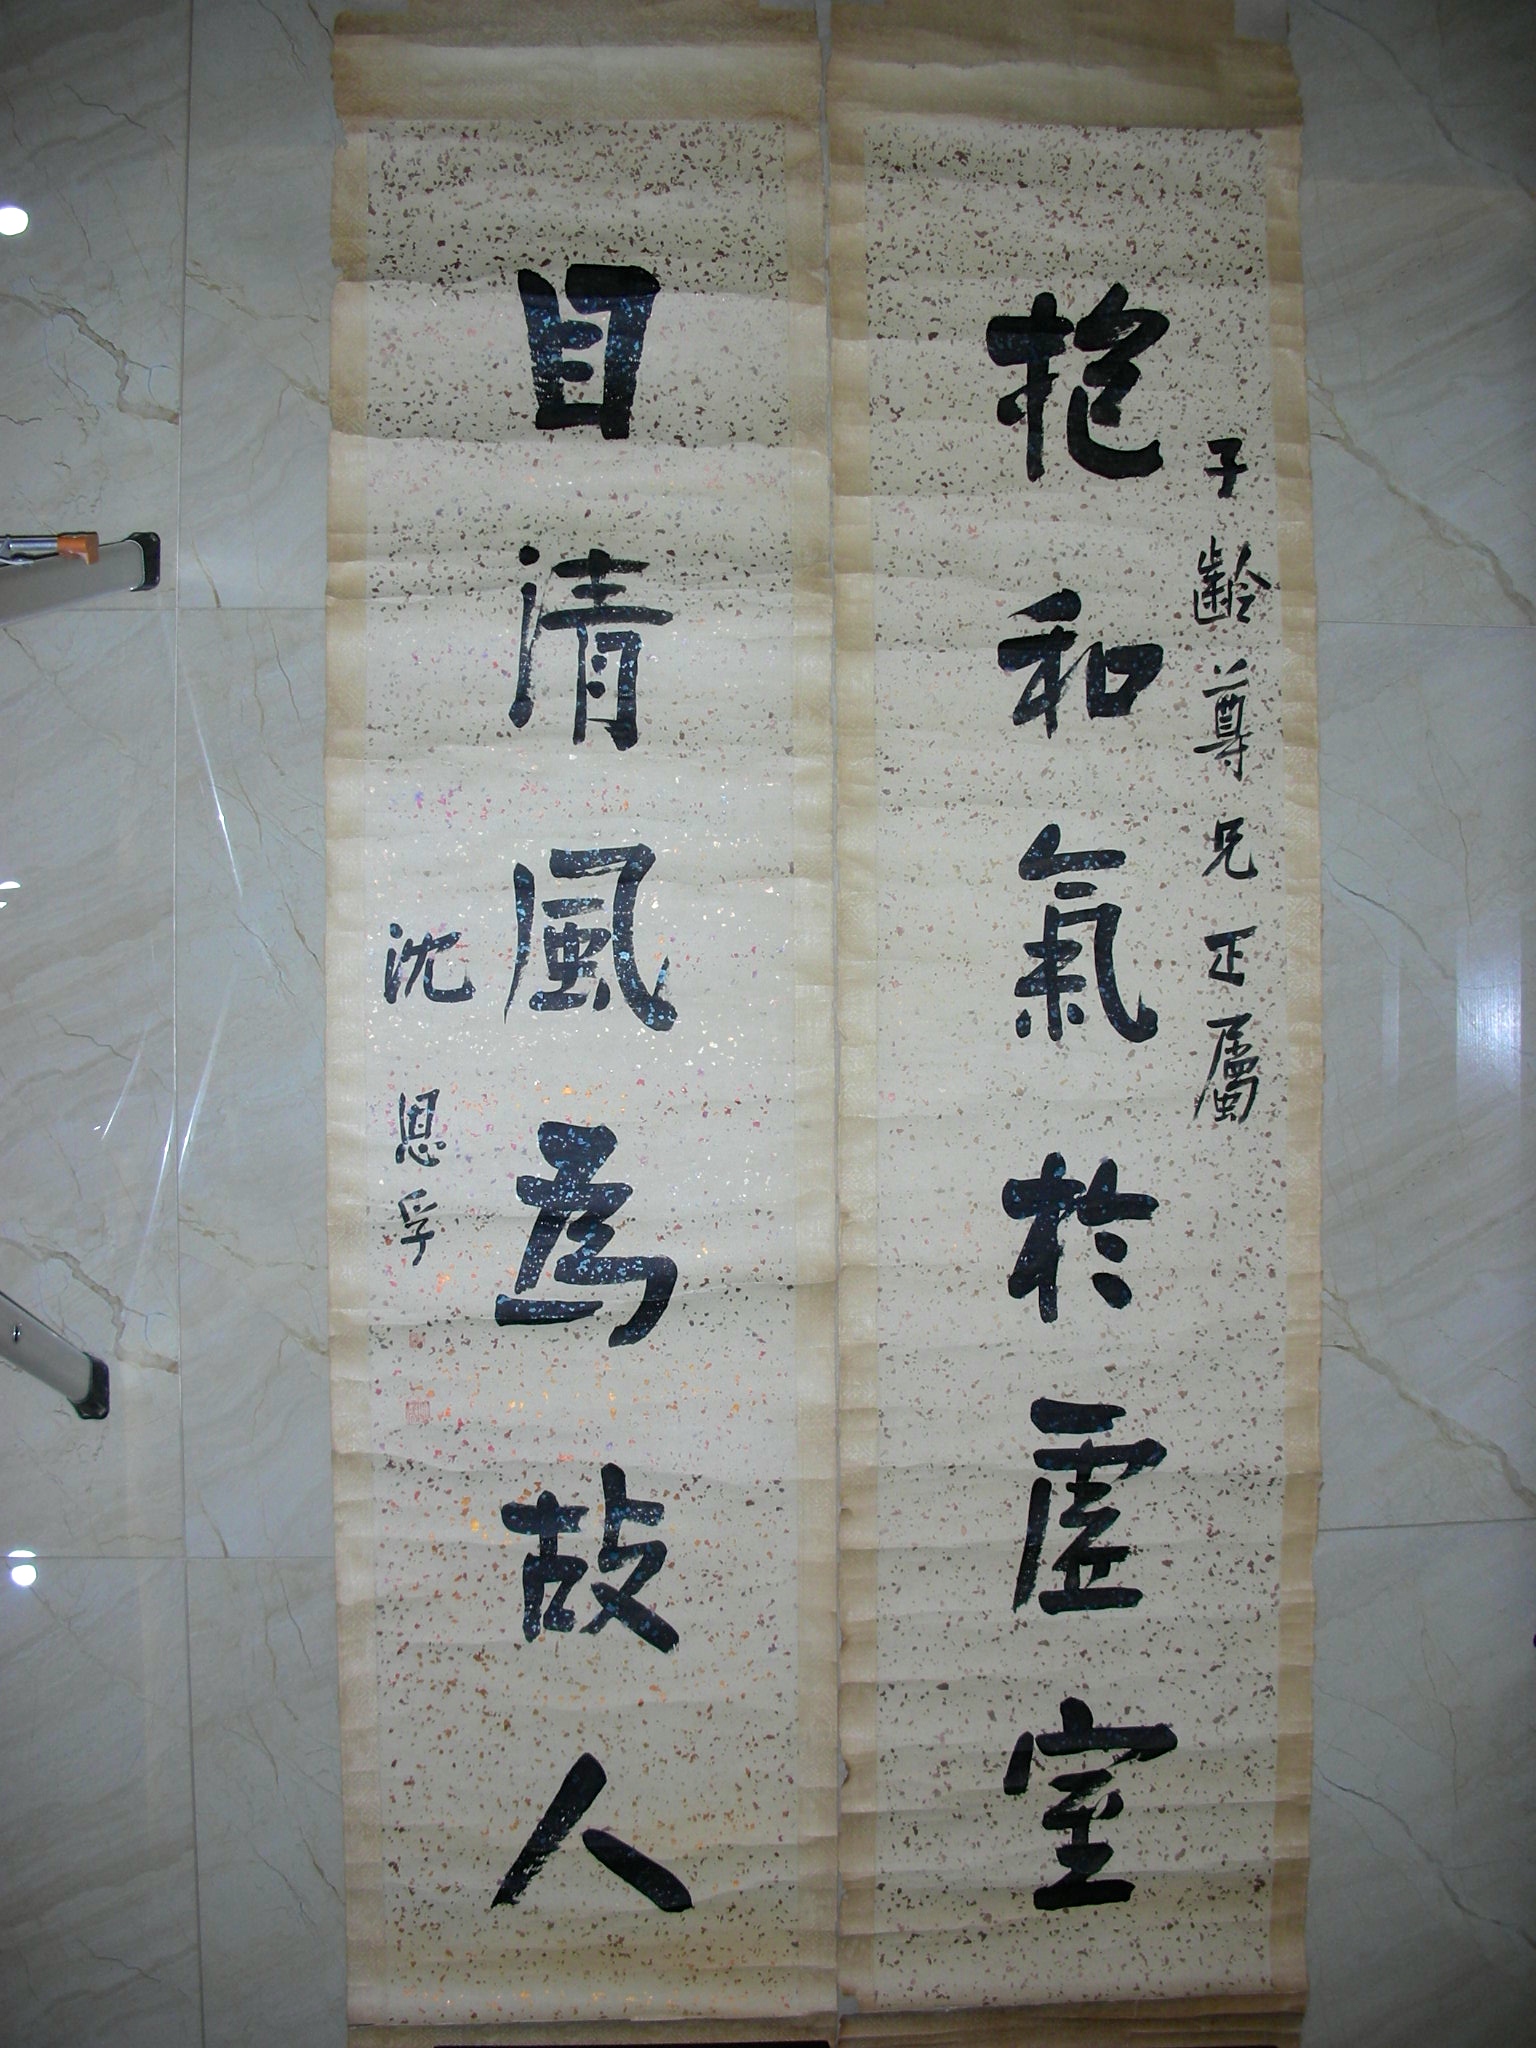 子齡尊兄正屬
抱和氣於虛室
目清風為故人
沈恩孚